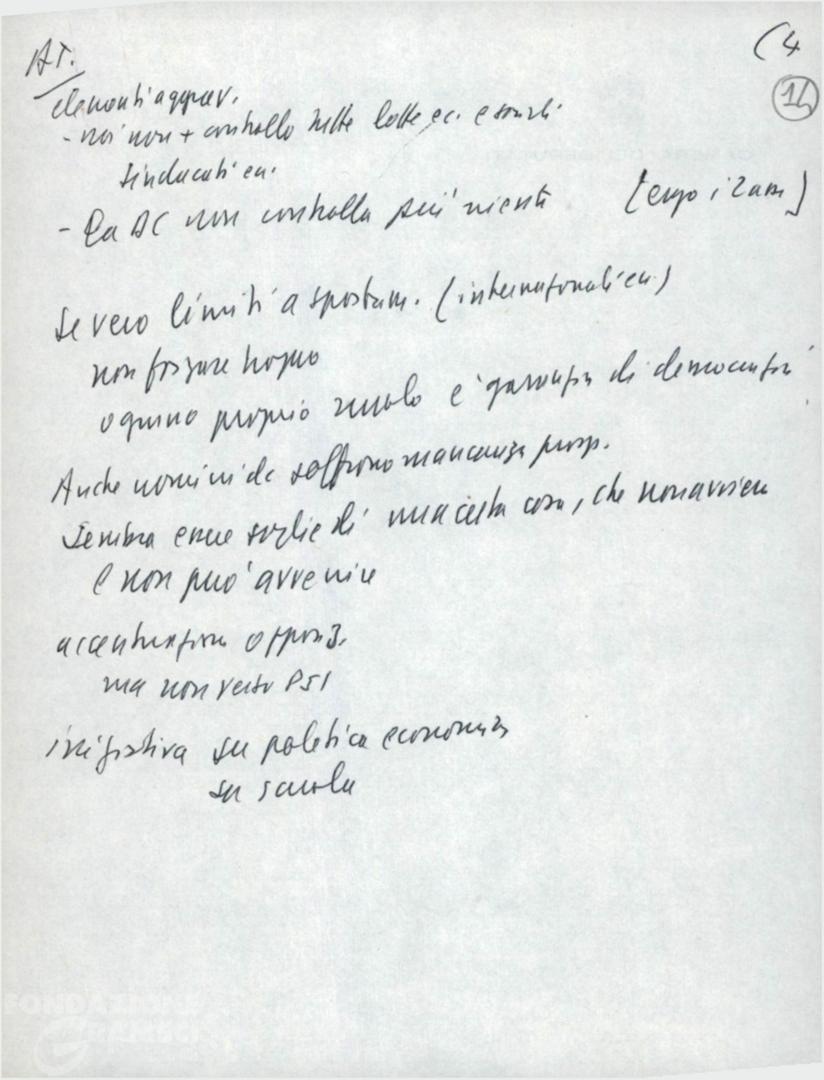 (4
14
AT.
elementi aggrav.
- noi non + controllo tutte lotte ec. e sociali
sindacati ecc.
- La DC non controlla più niente [ergo i 2 anni]
se vero limiti a spostam. (internazionali ecc.)
non forzare troppo
ognuno proprio ruolo è garanzia di democrazia
Anche uomini dc soffrono mancanza prosp.
Sembra essere soglie di una certa cosa, che non avviene
e non può avvenire
accentuazione oppos.
ma non verso PSI
iniziativa su politica economica
su scuola
FONDAZIONE
GRAMSCI